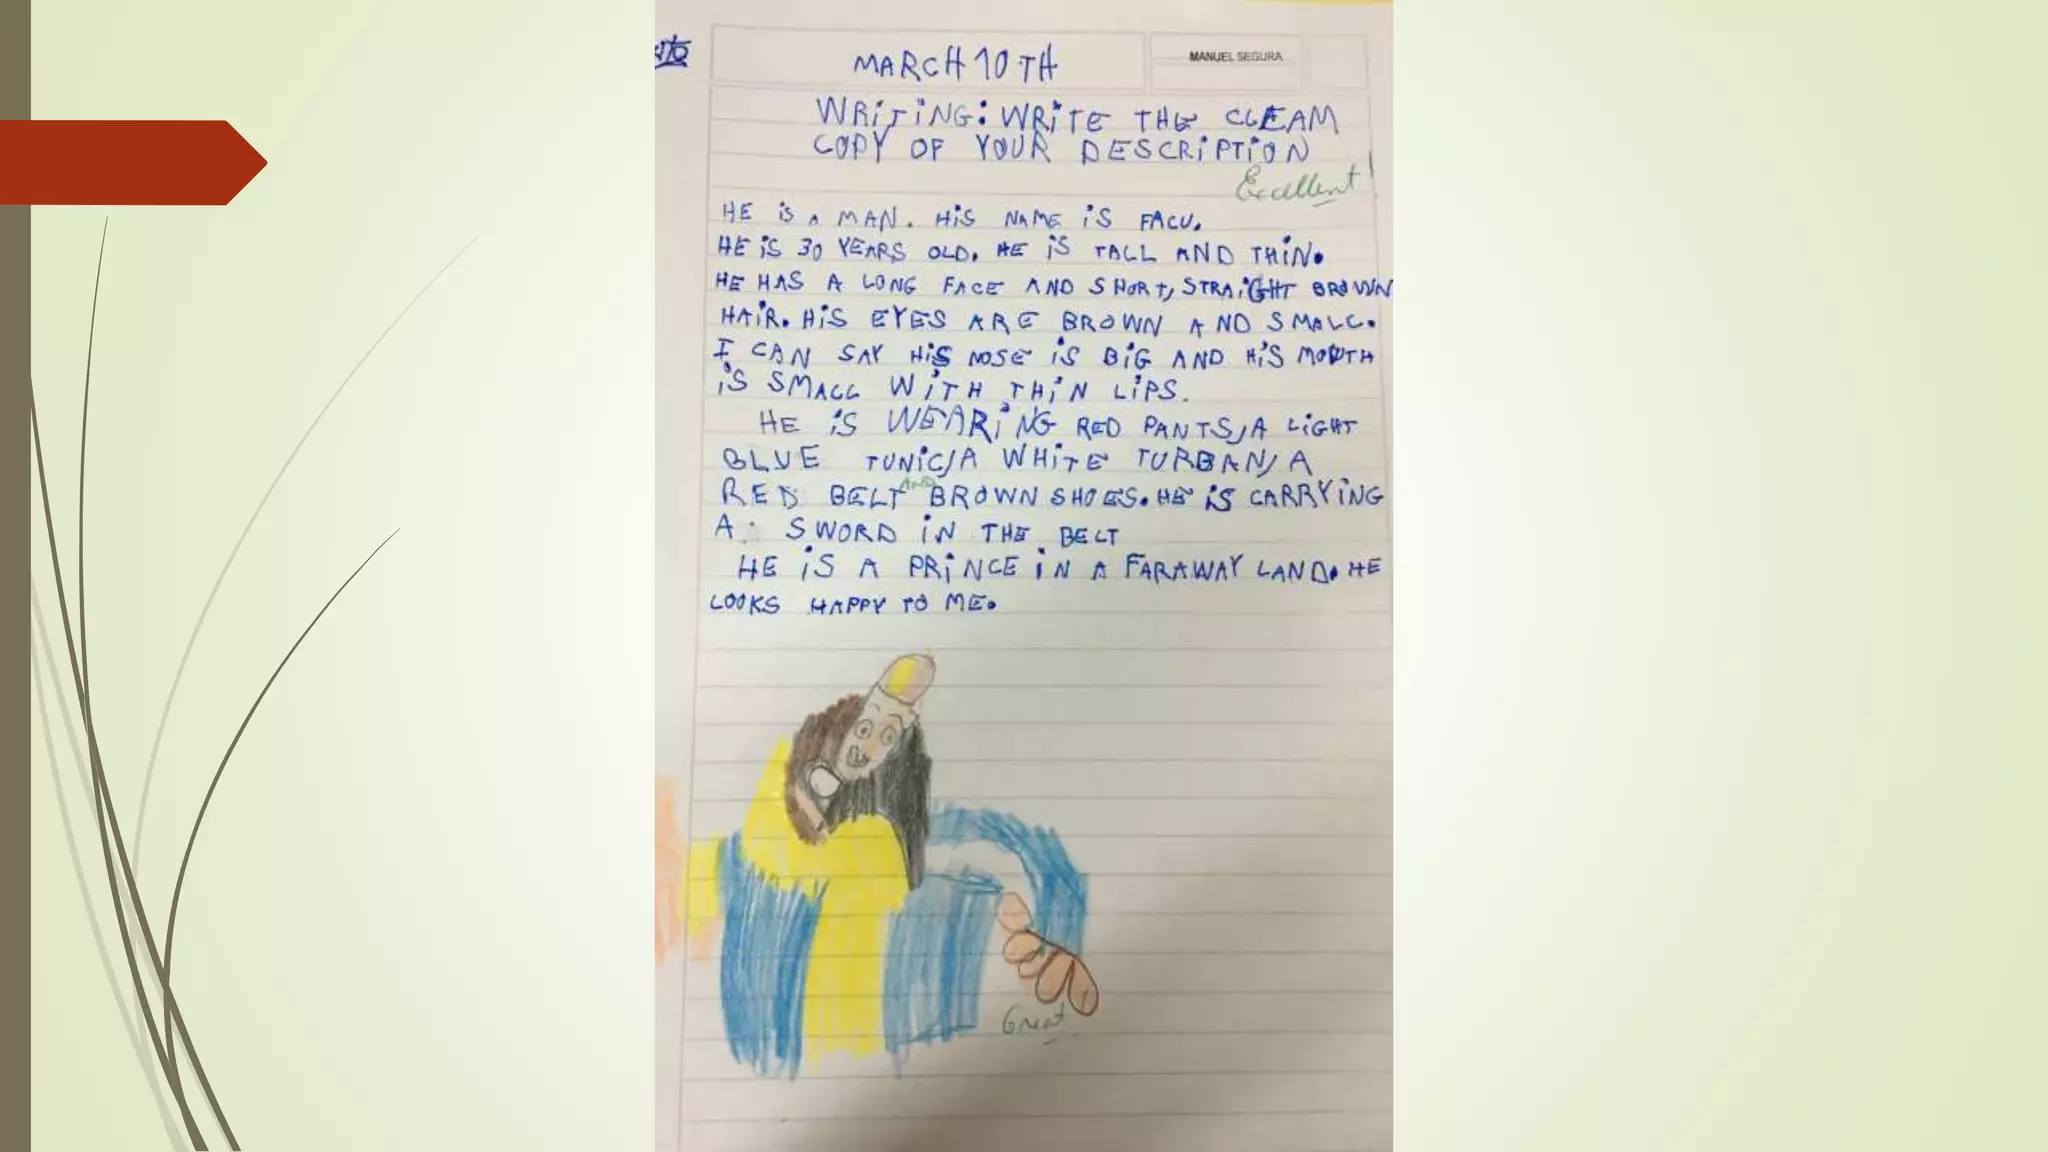 MARCH 10TH
MANUEL SEGURA
WRITING: WRITE THE CLEAM
COPY OF YOUR DESCRIPTION
Excellent!
HE IS A MAN. HIS NAME IS FACU.
HE IS 30 YEARS OLD. HE IS TALL AND THIN.
HE HAS A LONG FACE AND SHORT, STRAIGHT BROWN
HAIR. HIS EYES ARE BROWN AND SMALL.
I CAN SAY HIS NOSE IS BIG AND HIS MOUTH
IS SMALL WITH THIN LIPS.
HE IS WEARING RED PANTS, A LIGHT
BLUE TUNIC, A WHITE TURBAN, A
RED BELT AND BROWN SHOES. HE IS CARRYING
A SWORD IN THE BELT
HE IS A PRINCE IN A FARAWAY LAND. HE
LOOKS HAPPY TO ME.
Great